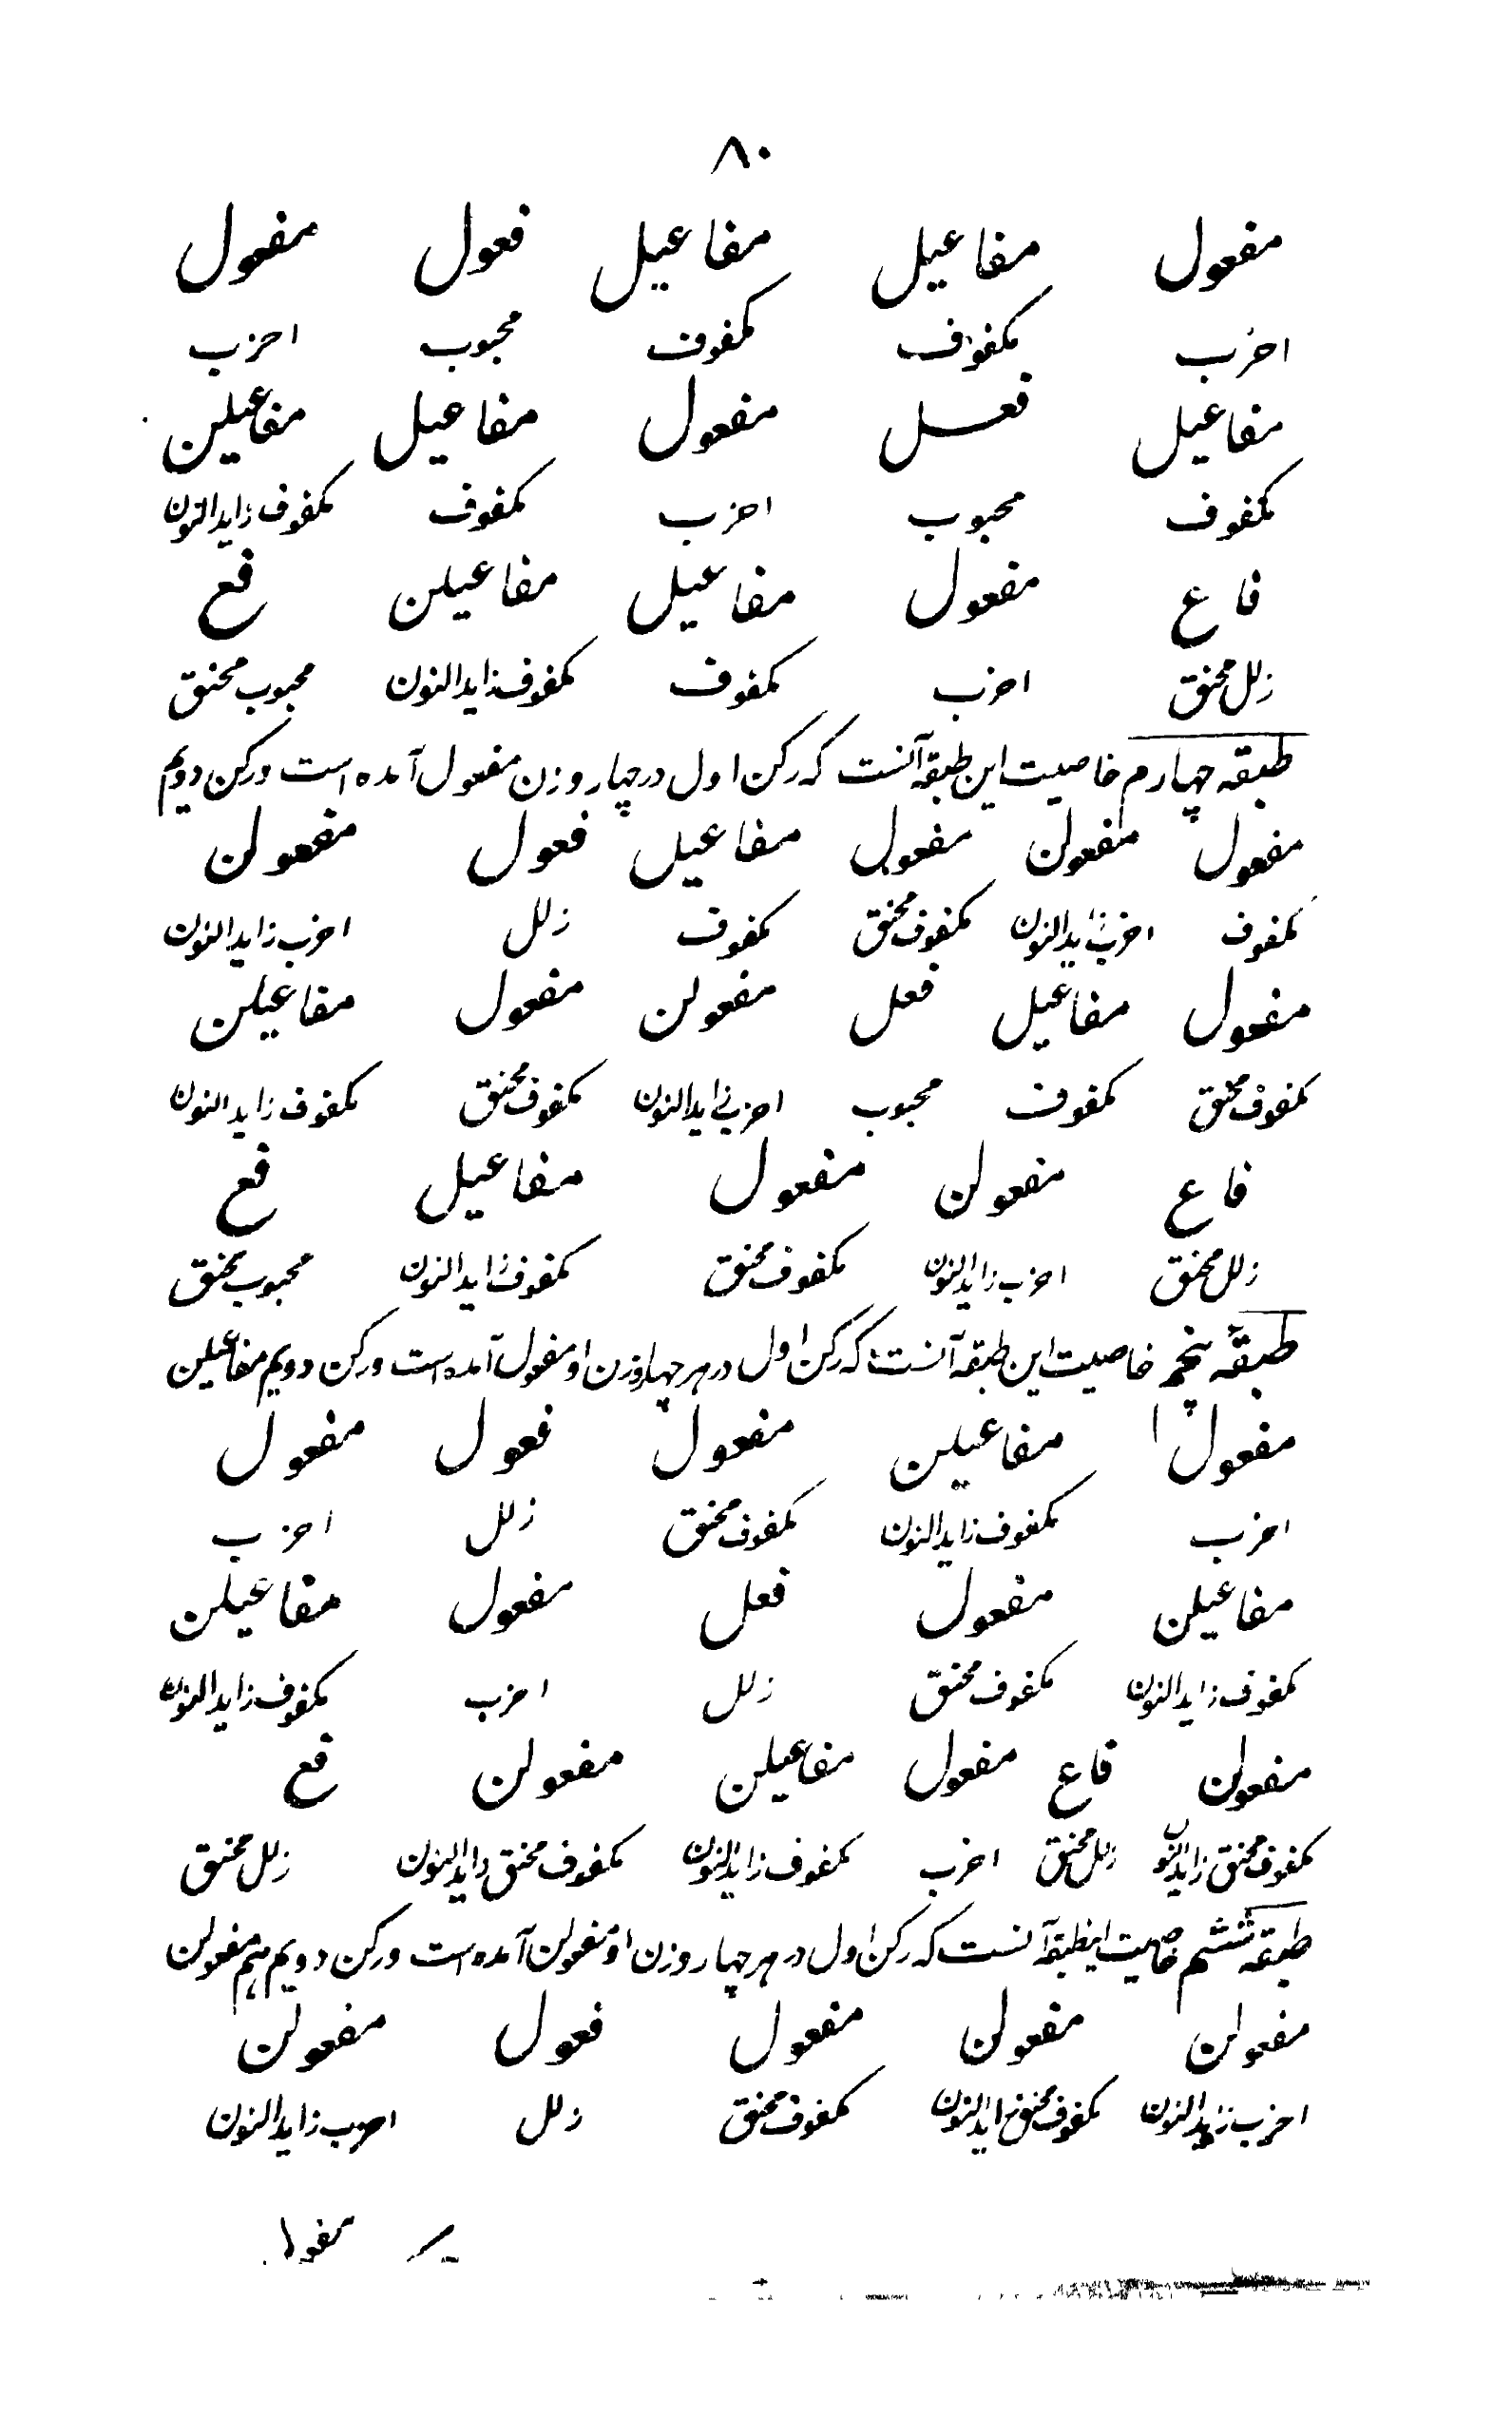 ۸۰
مفعول مفاعیل مفاعیل فعول مفعول
اخرب مکفوف مکفوف مجبوب اخرب
مفاعیل فعل مفعول مفاعیل مفاعیلن
مکفوف مجبوب اخرب مکفوف مکفوف زایدالنون
فاع مفعول مفاعیل مفاعیلن فع
زلل مخنق اخرب مکفوف مکفوف زایدالنون مجبوب مخنق
طبقه چهارم خاصیت این طبقه آنست که رکن اول در چهار وزن مفعول آمده است ورکن دویم
مفعول مفعولن مفعول مفاعیل فعول مفعولن
مکفوف اخرب زایدالنون مکفوف مخنق مکفوف زلل اخرب زایدالنون
مفعول مفاعیل فعل مفعولن مفعول مفاعیلن
مکفوف مخنق مکفوف مجبوب اخرب زایدالنون مکفوف مخنق مکفوف زایدالنون
فاع مفعولن مفعول مفاعیل فع
زلل مخنق اخرب زایدالنون مکفوف مخنق مکفوف زایدالنون مجبوب مخنق
طبقه پنجم خاصیت این طبقه آنست که رکن اول در هر چهار وزن او مفعول آمده است ورکن دویم مفاعیلن
مفعول مفاعیلن مفعول فعول مفعول
اخرب مکفوف زایدالنون مکفوف مخنق زلل اخرب
مفاعیلن مفعول فعل مفعول مفاعیلن
مکفوف زایدالنون مکفوف مخنق زلل اخرب مکفوف زایدالنون
مفعولن فاع مفعول مفاعیلن مفعولن فع
مکفوف مخنق زایدالنون زلل مخنق اخرب مکفوف زایدالنون مکفوف مخنق زایدالنون زلل مخنق
طبقه ششم خاصیت اینطبقه آنست که رکن اول در هر چهار وزن او مفعولن آمده است ورکن دویم هم مفعولن
مفعولن مفعولن مفعول فعول مفعولن
اخرب زایدالنون مکفوف مخنق زایدالنون مکفوف مخنق زلل اخرب زایدالنون